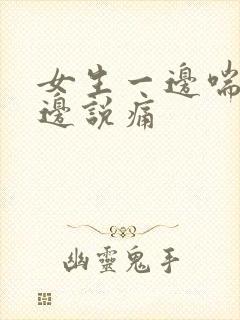 女生一邊喘
邊說痛
幽靈鬼手